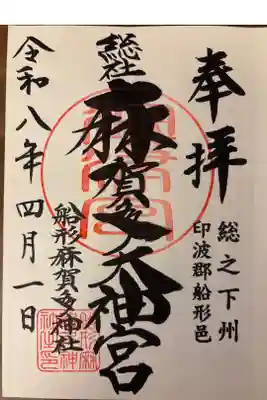 奉拝
総之下州
印波郡船形邑
総社
麻賀多大神宮
船形麻賀多神社
令和八年四月一日